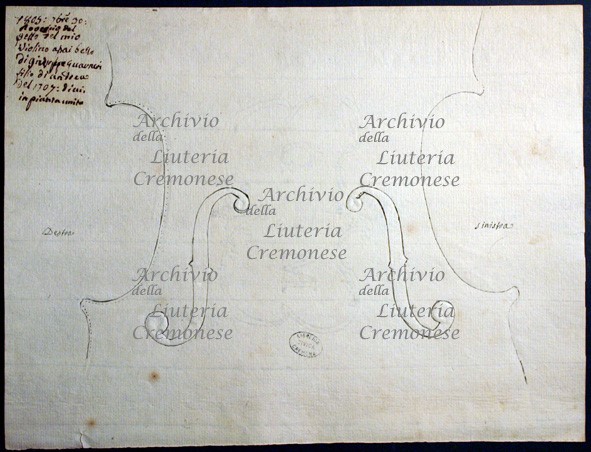 1805: 7bre 30:
del mio
Violino assai bello
di Giuseppe Guarneri
filio di Andrea
del 1707:
Destro
Sinistra
Archivio
della
Liuteria
Cremonese
Archivio
della
Liuteria
Cremonese
Archivio
della
Liuteria
Cremonese
Archivio
della
Liuteria
Cremonese
Archivio
della
Liuteria
Cremonese